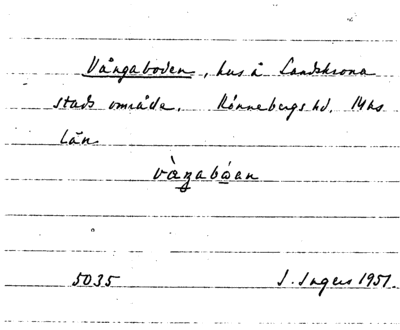 Vångaboden, hus å Landskrona
stads område. Rönnebergs hd. Mhs
län.
vàŋabǿan
5035 I. Ingers 1951.